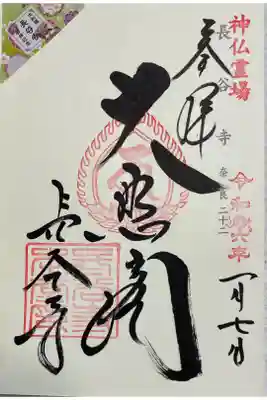 神仏霊場
長谷寺
奈良二十二
令和六年
一月七日
奉拝
大悲閣
長谷寺